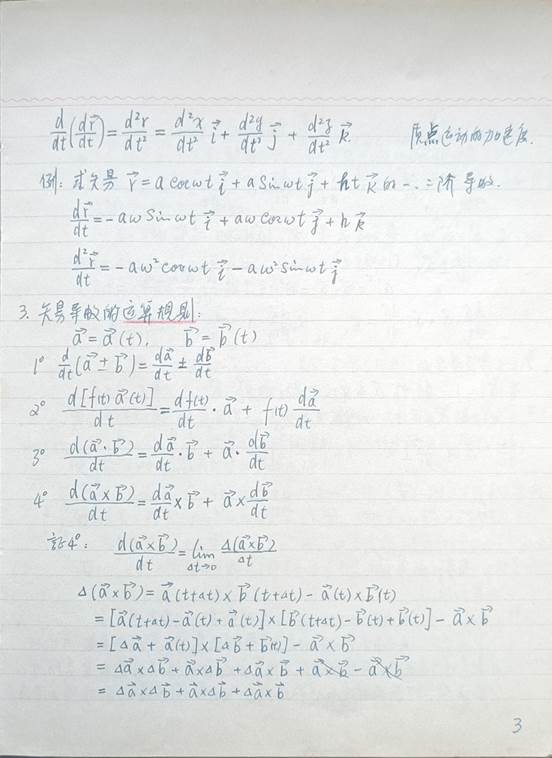 d/dt(dr⃗/dt) = d²r/dt² = d²x/dt² i⃗ + d²y/dt² j⃗ + d²z/dt² k⃗ 质点运动的加速度.
例: 求矢易 r⃗ = a cosωt i⃗ + a Sinωt j⃗ + ht k⃗ 的一.二阶导数.
dr⃗/dt = -aω Sinωt i⃗ + aω cosωt j⃗ + h k⃗
d²r⃗/dt = -aω² cosωt i⃗ - aω² sinωt j⃗
3. 矢易导数的运算规则:
a⃗ = a⃗(t), b⃗ = b⃗(t)
1° d/dt(a⃗ ± b⃗) = da⃗/dt ± db⃗/dt
2° d[f(t) a⃗(t)]/dt = df(t)/dt · a⃗ + f(t) da⃗/dt
3° d(a⃗·b⃗)/dt = da⃗/dt · b⃗ + a⃗ · db⃗/dt
4° d(a⃗×b⃗)/dt = da⃗/dt × b⃗ + a⃗ × db⃗/dt
証4°: d(a⃗×b⃗)/dt = lim Δt→0 Δ(a⃗×b⃗)/Δt
Δ(a⃗×b⃗) = a⃗(t+Δt) × b⃗(t+Δt) - a⃗(t) × b⃗(t)
= [a⃗(t+Δt) - a⃗(t) + a⃗(t)] × [b⃗(t+Δt) - b⃗(t) + b⃗(t)] - a⃗ × b⃗
= [Δa⃗ + a⃗(t)] × [Δb⃗ + b⃗(t)] - a⃗ × b⃗
= Δa⃗×Δb⃗ + a⃗×Δb⃗ + Δa⃗×b⃗ + a⃗×b⃗ - a⃗×b⃗
= Δa⃗×Δb⃗ + a⃗×Δb⃗ + Δa⃗×b⃗
3